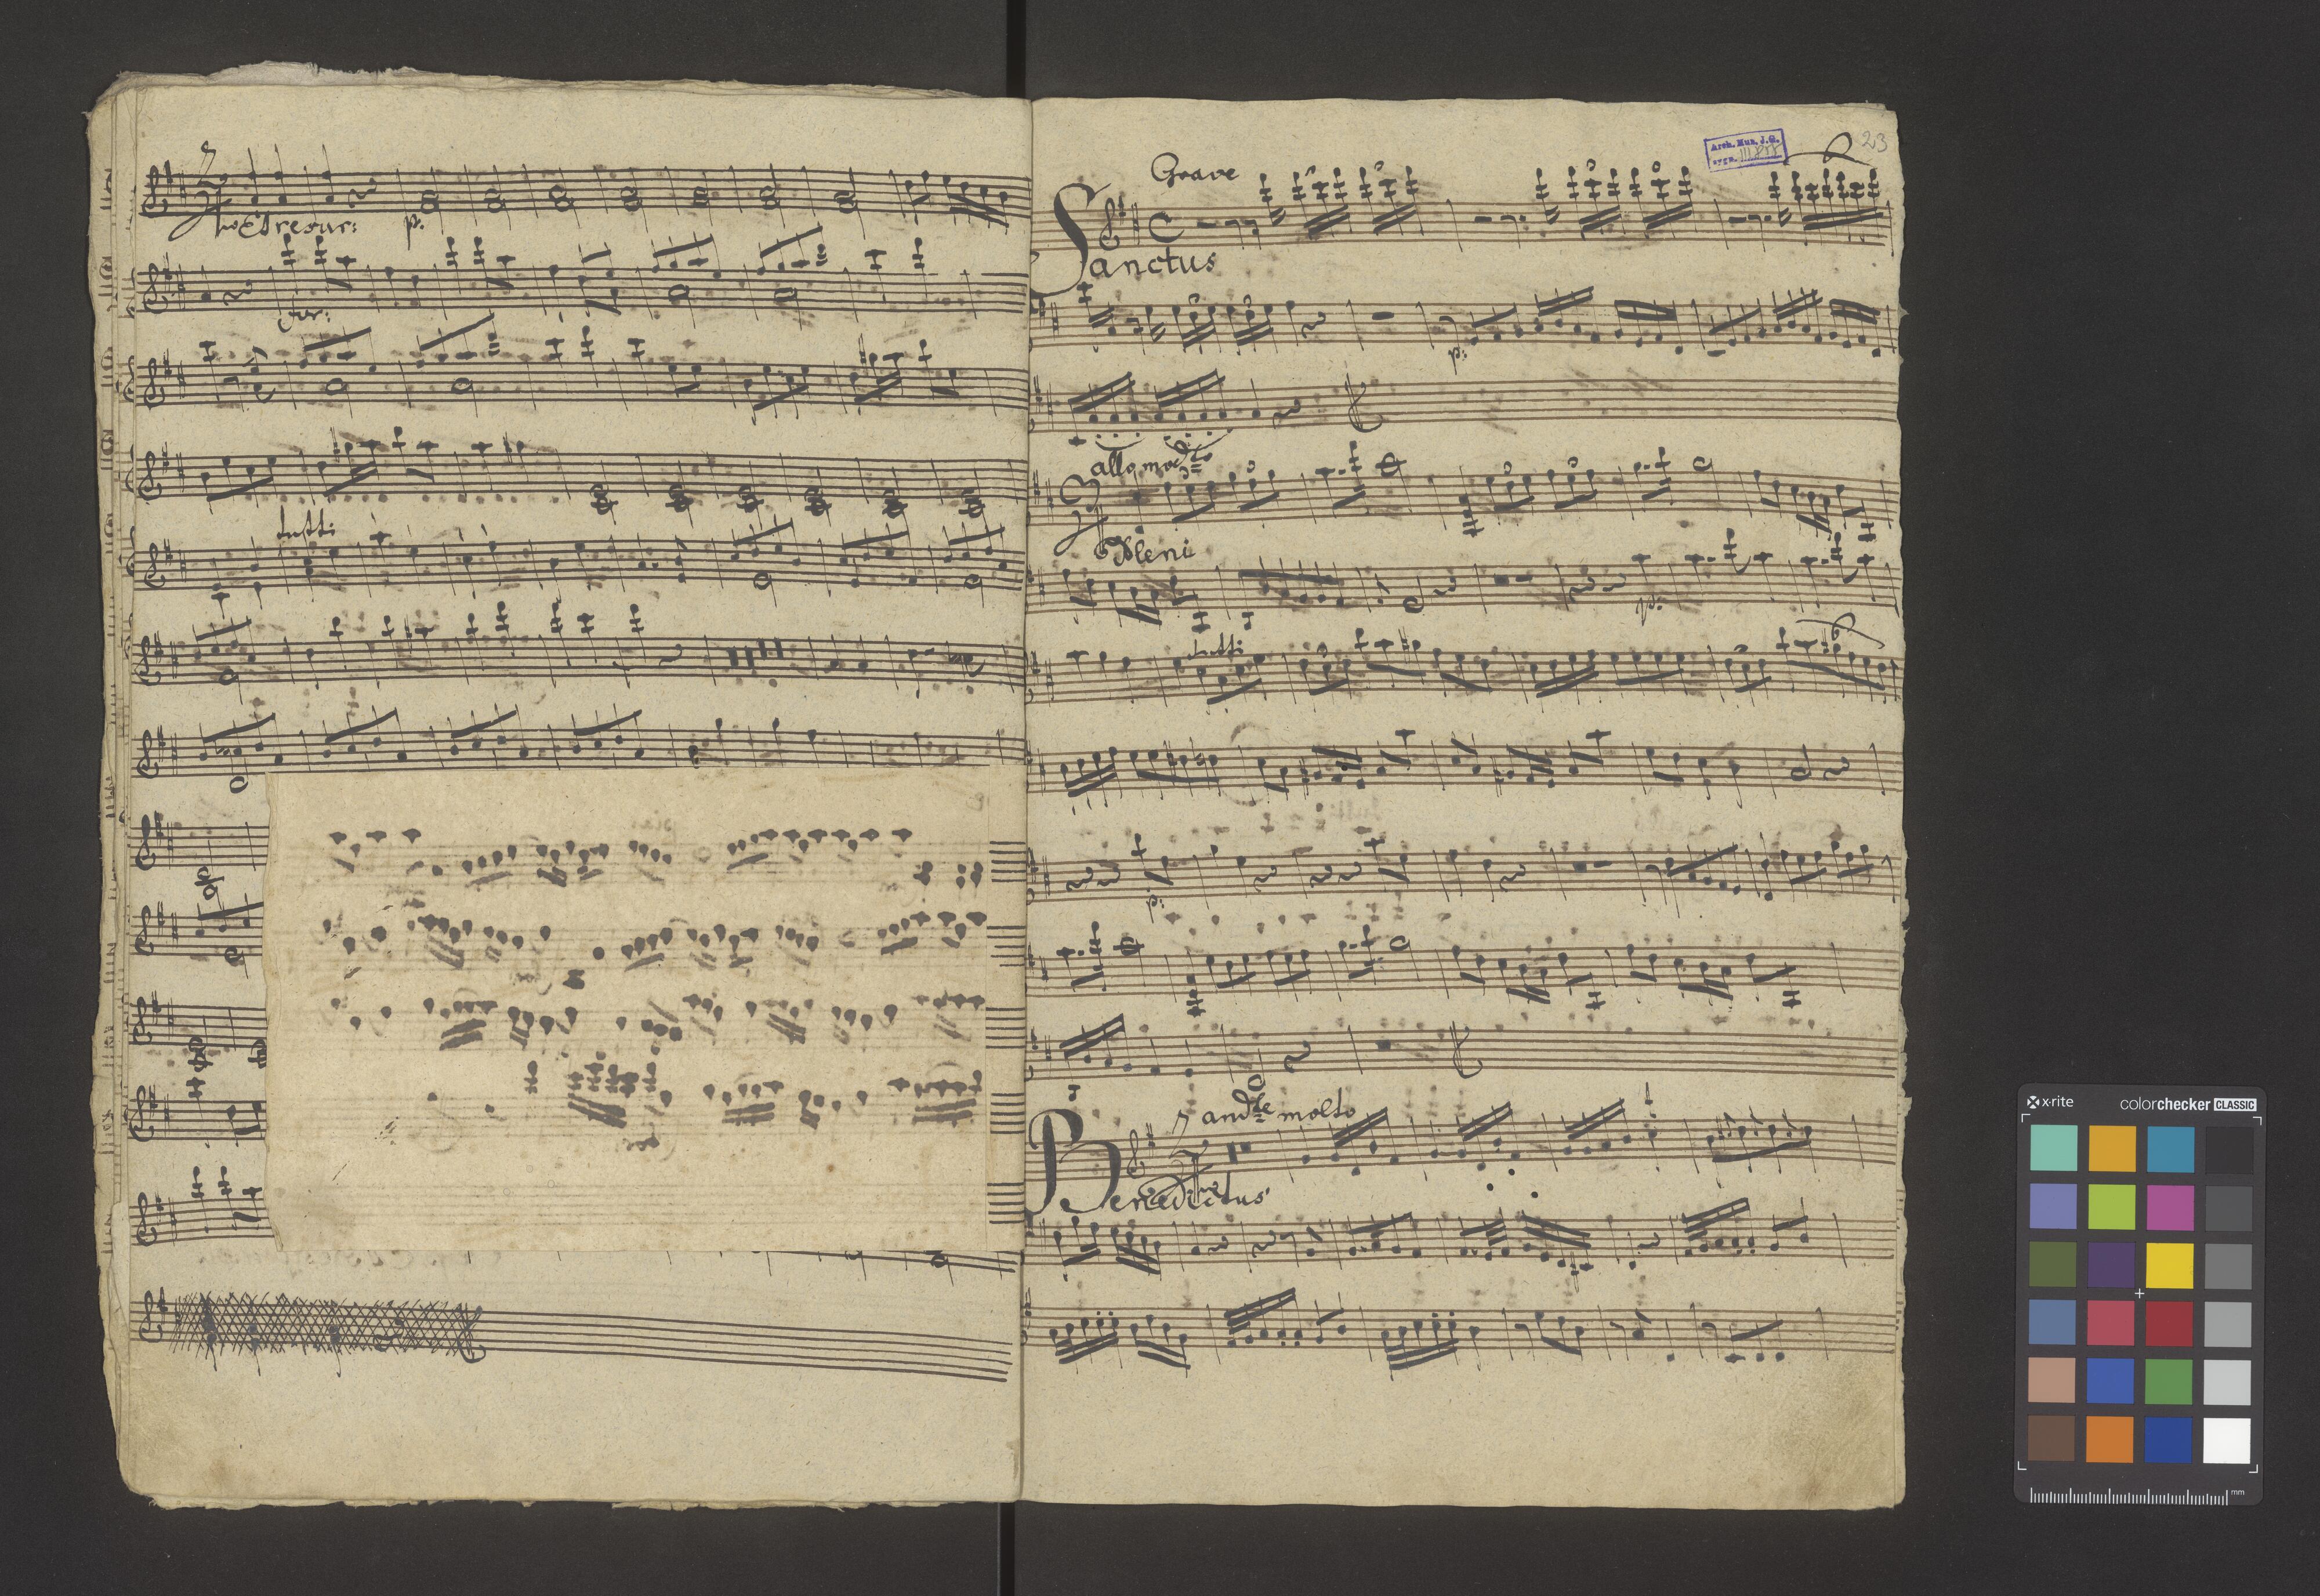 Et resur:
p:
for:
tutti
23
Arch. Muz. J.G.
sygn. III
Grave
C
Sanctus
p:
allo modto
Pleni
p:
tutti
p:
andte molto
Benedictus
x-rite
colorchecker CLASSIC
mm